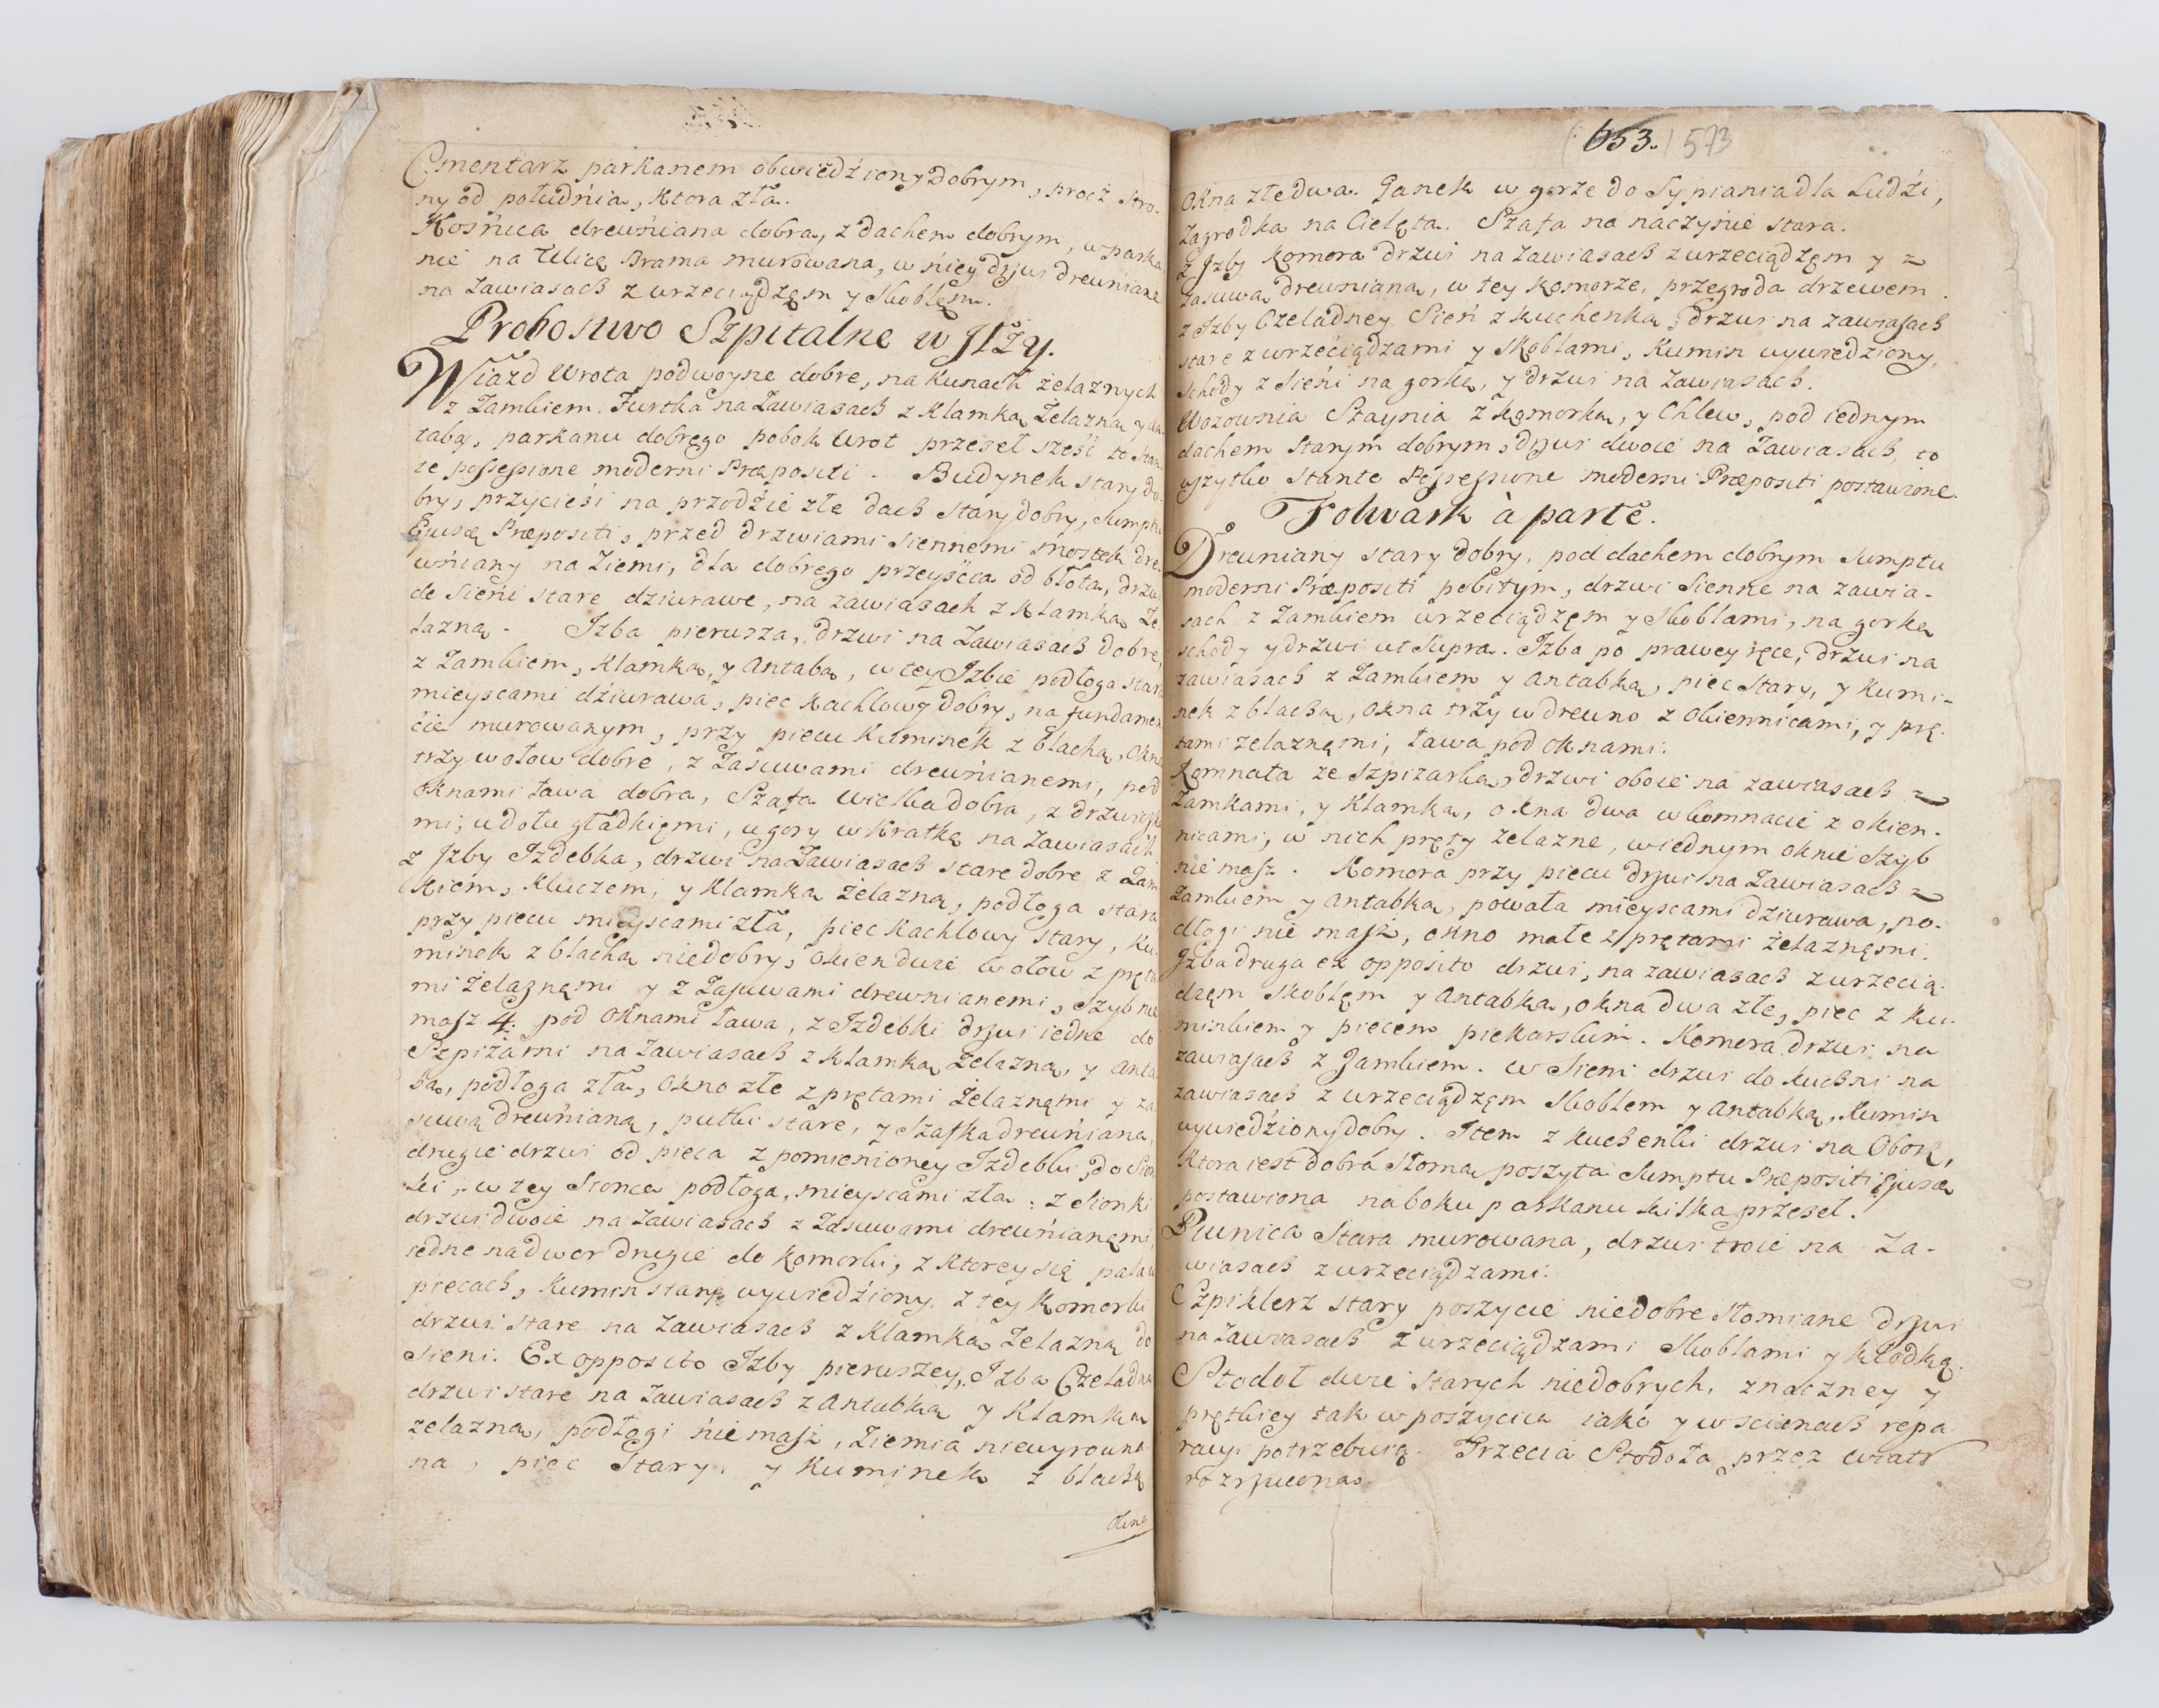 Cmentarz parkanem obwiedźiony dobrym, procz stro-
ny od południa, ktora zła.
Kośnica drewńiana dobra, z dachem dobrym, w parka
nie na Ulicę Brama murowana, w niey drzwi drewńiane
na zawiasach z wrzeciądzęm y skoblęm.
Probostwo Szpitalne w Iłży.
Wiazd Wrota podwoyne dobre, na kunach żelaznych
z Zamkiem. Furtka na Zawiasach z klamką Żelazną y an-
tabą, parkanu dobrego pobok Wrot przeseł sześć to stan-
te possessione moderni Præpositi. Budynek stary do-
bry, przycieśi na przodźie złe dach stary dobry, sumptu
Ejusdę Præpositi, przed drzwiami siennemi mostek dre-
wńiany na Ziemi, dla dobrego przeyśćia od błota, drzwi
do Sieni stare dziurawe, na zawiasach z klamką Że-
lazną. Izba pierwsza, drzwi na Zawiasach dobre,
z Zamkiem, klamką, y Antabą, w tey Izbie podłoga stara
mieyscami dźiurawa, piec kachlowy dobry, na fundamen
ćie murowanym, przy piecu Kuminek z blachą, okna
trzy w ołow dobre, z Zasuwami drewńianemi, pod
oknami ława dobra, Szafa wielka dobra, z drzwicz
mi, u dołu gładkięmi, u gory w kratkę na Zawiasach
z Izby Izdebka, drzwi na Zawiasach stare dobre z Zam
kiem, kluczem, y klamką żelazną, podłoga stara
przy piecu mieyscami zła, piec kachlowy stary, Ku-
minek z blachą niedobry, okien dwie w ołow z pręta
mi żelaznęmi y z Zasuwami drewnianemi, szyb nie
masz 4. pod oknami ława, z Izdebki drzwi iedne do
Szpiżarni na Zawiasach z klamką Żelazną, y anta
bą, podłoga zła, okno złe z prętami Żelaznęmi y za
suwą drewńianą, pułki stare, y szafka drewńiana,
drugie drzwi od pieca z pomienioney Izdebki do Sion
ki, w tey Sionce podłoga, mieyscami zła: z Sionki
drzwi dwoie na Zawiasach z Zasuwami drewńianęmi,
iedne na dwor drugie do komorki, z ktorey się pala w
piecach, kumin stary wywiedźiony. z tey komorki
drzwi stare na Zawiasach z klamką Żelazną do
Sieni. Ex opposito Izby pierwszey, Izba Czeladna
drzwi stare na Zawiasach z Antabką y klamką
żelazną, podłogi niemasz, Ziemia niewyrowna-
na, piec stary, y Kuminek z blachą
okna
653. 573
okna złe dwa. Ganek w gorze do sypiania dla Ludźi,
Zagrodka na Cielęta. Szafa na naczynie stara.
z Izby komora drzwi na Zawiasach z wrzeciądzęm y z
zasuwą drewniana, w tey komorze, przegroda drzewem.
z Izby Czeladney Sień z kuchenką, drzwi na zawiasach
stare z wrzeciądzami y skoblami, Kumin wywiedziony,
schody z Sieni na gorkę, y drzwi na Zawiasach.
Wozownia Staynia z komorką, y Chlew, pod iednym
dachem starym dobrym, drzwi dwoie na Zawiasach, to
wszytko stante possessione moderni Præpositi postawione.
Folwark à parte.
Drewniany stary dobry, pod dachem dobrym sumptu
moderni Præpositi pobitym, drzwi Sienne na zawia-
sach z Zamkiem wrzeciądzęm y skoblami, na gorkę
schody y drzwi ut supra. Izba po prawey ręce, drzwi na
zawiasach z Zamkiem y Antabką, piec stary, y kumi-
nek z blachą, okna trzy w drewno z okiennicami, y prę-
tami żelaznęmi, ława pod oknami.
Komnata ze szpizarką, drzwi oboie na zawiasach z
Zamkami, y klamką, okna dwa w komnacie z okien-
nicami, w nich pręty żelazne, w iednym oknie szyb
nie masz. Komora przy piecu drzwi na Zawiasach z
Zamkiem y antabką, powała mieyscami dziurawa, po-
dłogi nie masz, okno małe z prętami żelaznęmi.
Izba druga ex opposito drzwi, na zawiasach z wrzecią-
dzęm skoblęm y Antabką, okna dwa złe, piec z ku-
minkiem y piecem piekarskim. Komora drzwi na
zawiasach z Zamkiem. w Sieni drzwi do kuchni na
zawiasach z wrzeciądzęm skoblem y Antabką, kumin
wywiedźiony dobry. Item z kuchenki drzwi na Oborę,
ktora iest dobra słomą poszyta sumptu Præpositi Ejusdę
postawiona na boku parkanu kilka przeseł.
Piwnica stara murowana, drzwi troie na Za-
wiasach z wrzeciądzami.
Szpiklerz stary poszycie niedobre słomiane drzwi
na Zawiasach z wrzeciądzami skoblami y kłodką.
Stodoł dwie starych niedobrych, znaczney y
prętkiey tak w poszyciu iako y w scianach repa
racyi potrzebuią. Trzecia Stodoła przez wiatr
rozrzucona.